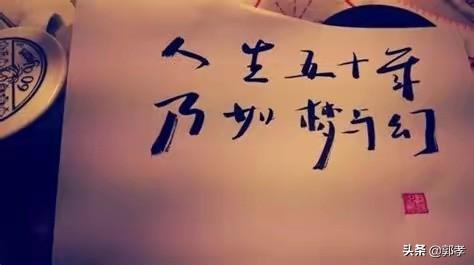 人生五十年
乃如梦与幻
头条 @郭孝